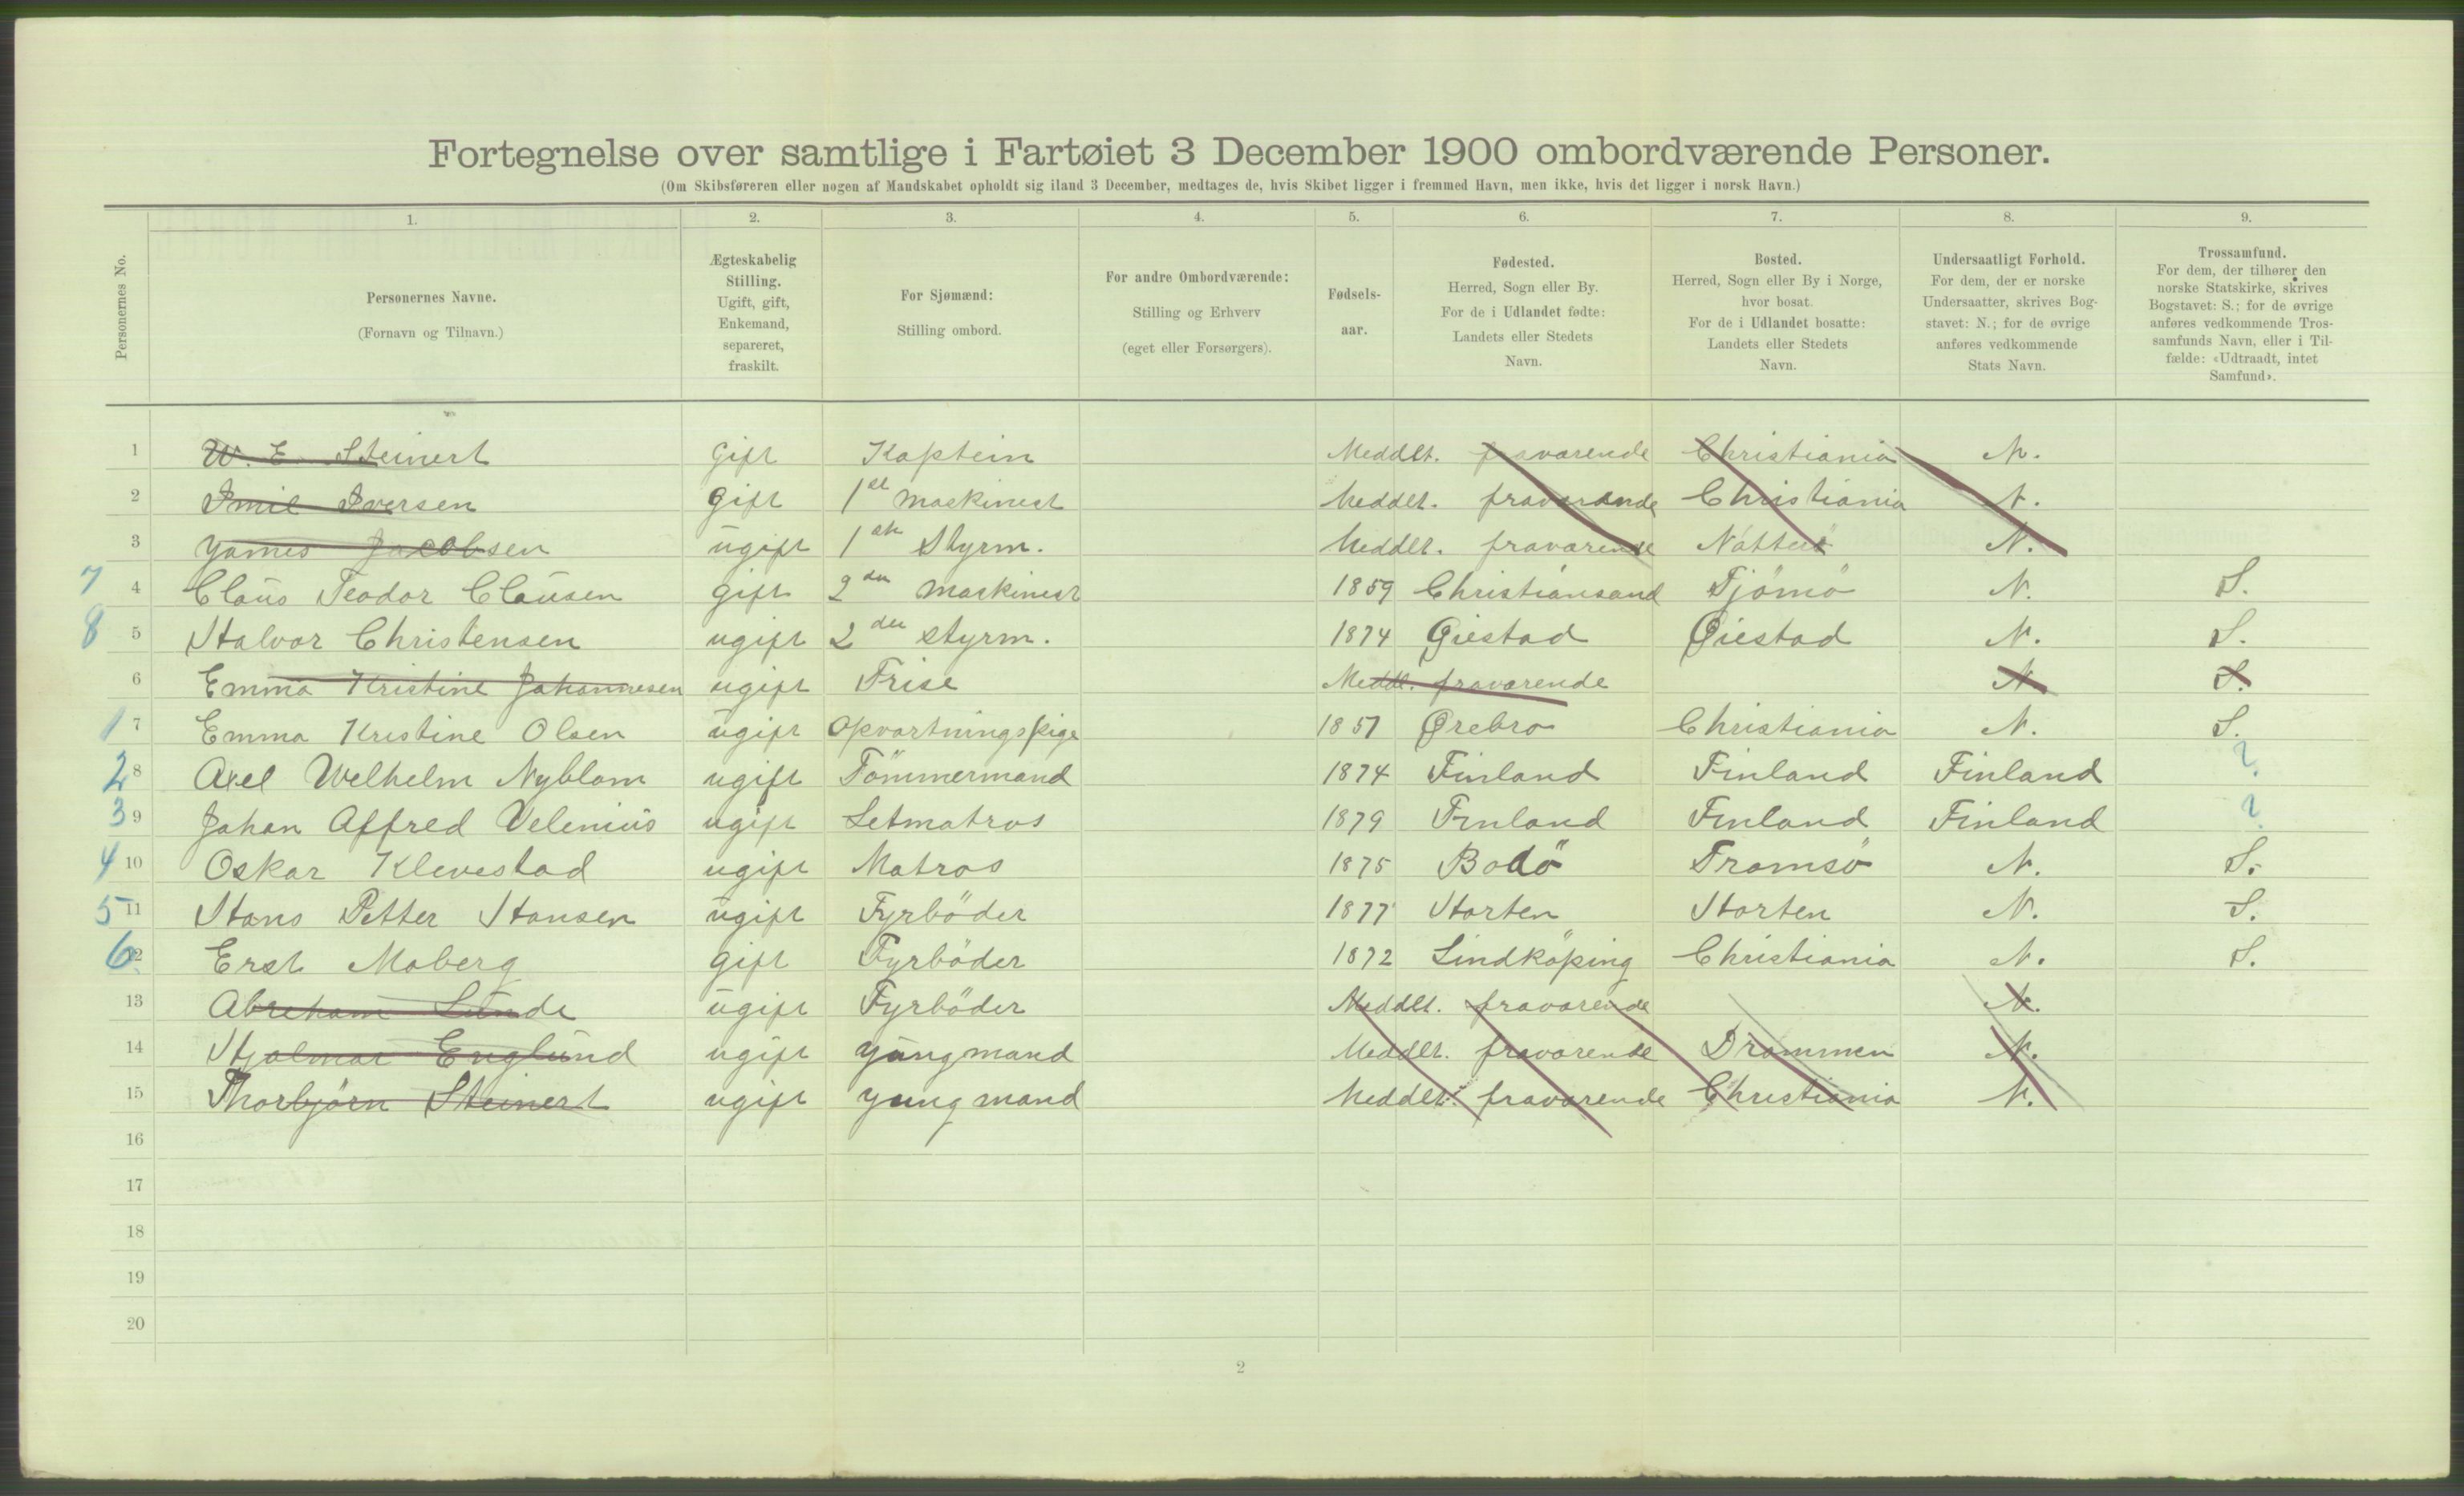 Fortegnelse over samtlige i Fartøiet 3 December 1900 ombordværende Personer.
(Om Skibsføreren eller nogen af Mandskabet opholdt sig iland 3 December, medtages de, hvis Skibet ligger i fremmed Havn, men ikke, hvis det ligger i norsk Havn.)
1. 2. 3. 4. 5. 6. 7. 8. 9.
Personernes No.
Personernes Navne.
(Fornavn og Tilnavn.)
Ægteskabelig
Stilling.
Ugift, gift,
Enkemand,
separeret,
fraskilt.
For Sjømænd:
Stilling ombord.
For andre Ombordværende:
Stilling og Erhverv
(eget eller Forsørgers).
Fødsels-
aar.
Fødested.
Herred, Sogn eller By.
For de i Udlandet fødte:
Landets eller Stedets
Navn.
Bosted.
Herred, Sogn eller By i Norge,
hvor bosat.
For de i Udlandet bosatte:
Landets eller Stedets
Navn.
Undersaatligt Forhold.
For dem, der er norske
Undersaatter, skrives Bog-
stavet: N.; for de øvrige
anføres vedkommende
Stats Navn.
Trossamfund.
For dem, der tilhører den
norske Statskirke, skrives
Bogstavet: S.; for de øvrige
anføres vedkommende Tros-
samfunds Navn, eller i Til-
fælde: «Udtraadt, intet
Samfund».
1 W. E. Steinert gift Kaptein Meddlt. fraværende Christiania N.
2 Emil Iversen gift 1st Maskinest Meddlt. fraværende Christiania N.
3 James Jacobsen ugift 1ste Styrm. Meddlt. fraværende N.
7 4 Claus Teodor Clausen gift 2den Maskinest 1859 Christiansand Tjömö N. S.
8 5 Halvor Christensen ugift 2den Styrm. 1874 Øiestad Øiestad N. S.
6 Emma Kristine Johannesen ugift Frise Meddl. fraværende N S.
1 7 Emma Kristine Olsen ugift Opvartningspige 1857 Ørebro Christiania N. S.
2 8 Axel Welhelm Nyblom ugift Tömmermand 1874 Finland Finland Finland ?
3 9 Johan Alfred Velenius ugift Letmatros 1879 Finland Finland Finland ?
4 10 Oskar Klevestad ugift Matros 1875 Bodö Tromsö N. S.
5 11 Hans Petter Hansen ugift Fyrböder 1877 Horten Horten N. S.
6 12 Erst Moberg gift Fyrböder 1872 Lindköping Christiania N. S.
13 Abreham Lunde ugift Fyrböder Meddlt. fraværende N.
14 Hjalmar Englund ugift yüngmand Meddlt. fraværende Drammen N.
15 Thorbjörn Steinert ugift yungmand Meddlt. fraværende Christiania N.
16
17
18
19
20
2